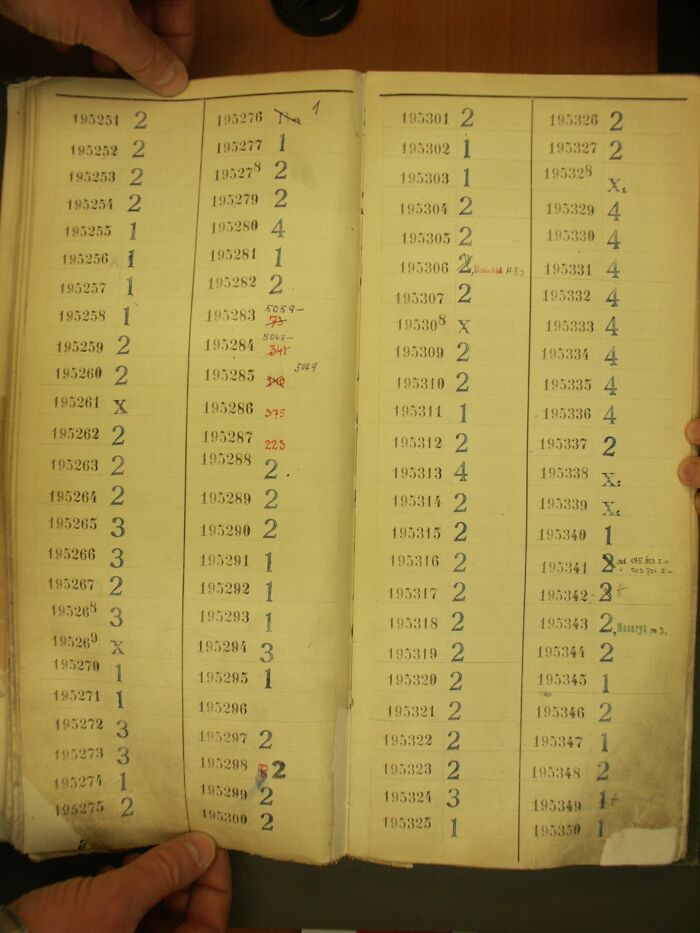 195251 2
195252 2
195253 2
195254 2
195255 1
195256 1
195257 1
195258 1
195259 2
195260 2
195261 x
195262 2
195263 2
195264 2
195265 3
195266 3
195267 2
195268 3
195269 x
195270 1
195271 1
195272 3
195273 3
195274 1
195275 2
195276 1
195277 1
195278 2
195279 2
195280 4
195281 1
195282 2
195283 5059- 73
195284 341
195285 5069
195286 375
195287 223
195288 2
195289 2
195290 2
195291 1
195292 1
195293 1
195294 3
195295 1
195296
195297 2
195298 2
195299 2
195300 2
195301 2
195302 1
195303 1
195304 2
195305 2
195306 2
195307 2
195308 x
195309 2
195310 2
195311 1
195312 2
195313 4
195314 2
195315 2
195316 2
195317 2
195318 2
195319 2
195320 2
195321 2
195322 2
195323 2
195324 3
195325 1
195326 2
195327 2
195328 x.
195329 4
195330 4
195331 4
195332 4
195333 4
195334 4
195335 4
195336 4
195337 2
195338 x.
195339 x.
195340 1
195341 2
195342 2 +
195343 2, Masaryk
195344 2
195345 1
195346 2
195347 1
195348 2
195349 1 +
195350 1